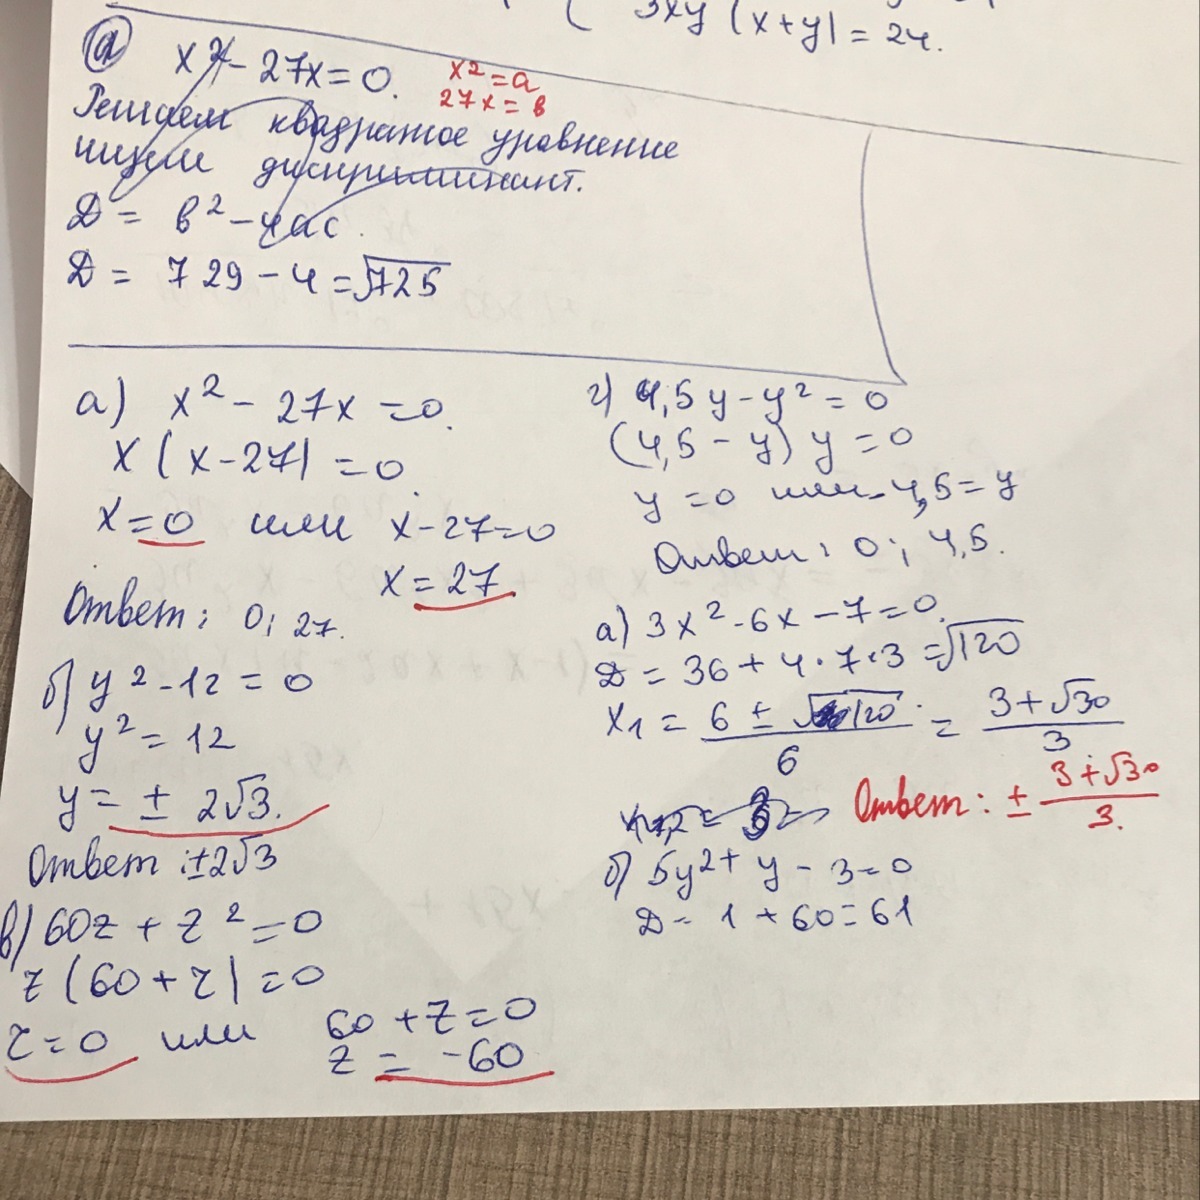 3xy (x+y) = 24.
а) x² - 27x = 0.
x² = a
27x = в
Решаем квадратное уравнение
ищем дискриминант.
D = в² - 4ac.
D = 729 - 4 = √725
а) x² - 27x = 0.
x (x - 27) = 0.
x = 0 или x - 27 = 0
x = 27.
Ответ: 0; 27.
б) y² - 12 = 0
y² = 12
y = ± 2√3.
Ответ: ±2√3
в) 60z + z² = 0
z (60 + z) = 0
z = 0 или 60 + z = 0
z = -60
г) 4,5y - y² = 0
(4,5 - y) y = 0
y = 0 или 4,5 = y
Ответ: 0; 4,5.
а) 3x² - 6x - 7 = 0.
D = 36 + 4·7·3 = √120
x₁ = (6 ± √120)/6 = (3 + √30)/3
Ответ: ± (3 + √30)/3.
б) 5y² + y - 3 = 0
D = 1 + 60 = 61